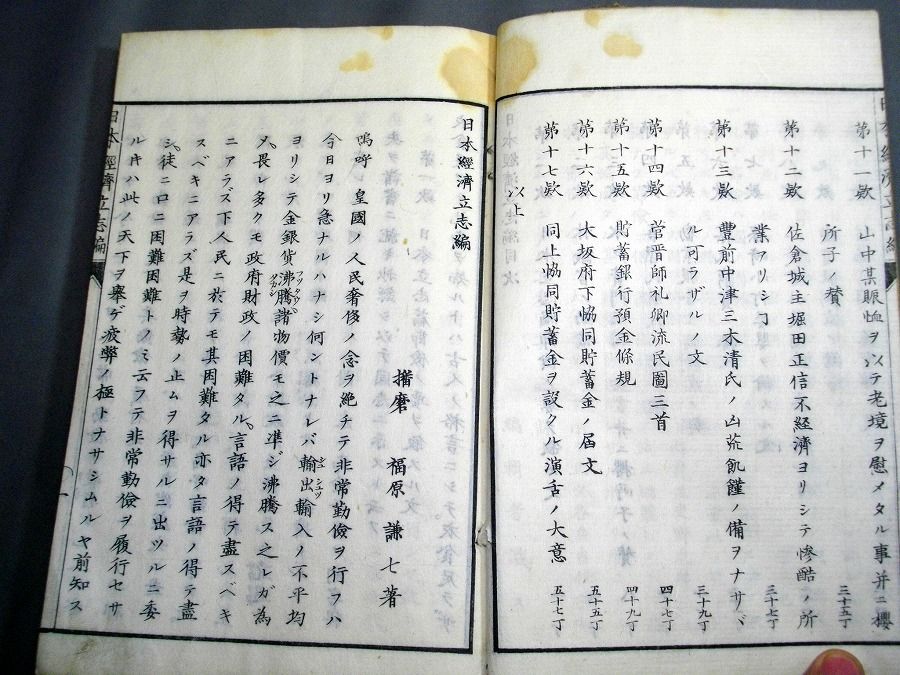 第十一欵 山中某賑恤ヲ以テ老境ヲ慰メタル事并ニ櫻
所子ノ賛 三十五丁
第十二欵 佐倉城主堀田正信不經濟ヨリシテ慘酷ノ所
業アリシ丁 三十七丁
第十三欵 豊前中津三木清氏ノ凶荒飢饉ノ備ヲナサヾ
ル可ラザルノ文 三十九丁
第十四欵 菅晋師礼卿流民圖三首 四十七丁
第十五欵 貯蓄銀行預金條規 四十九丁
第十六欵 大坂府下恊同貯蓄金ノ届文 五十五丁
第十七欵 同上恊同貯蓄金ヲ設クル演舌ノ大意 五十七丁
以上
日本經濟立志編
播磨 福原 謙七著
嗚呼 皇國ノ人民奢侈ノ念ヲ絶チテ非常勤儉ヲ行フハ
今日ヨリ急ナルハナシ何ントナレバ輸出輸入ノ不平均
ヨリシテ金銀貨沸騰諸物價モ之ニ準ジ沸騰ス之レガ為
メ畏レ多クモ政府財政ノ困難タル言語ノ得テ盡スベキ
ニアラズ下人民ニ於テモ其困難タル亦タ言語ノ得テ盡
スベキニアラズ是ヲ時勢ノ止ムヲ得サルニ出ツルニ委
シ徒ニ口ニ困難困難トノミ云フテ非常勤儉ヲ履行セサ
ルキハ此ノ天下ヲ舉ゲ疲弊ノ極トナサシムルヤ前知ス
日本經濟立志編